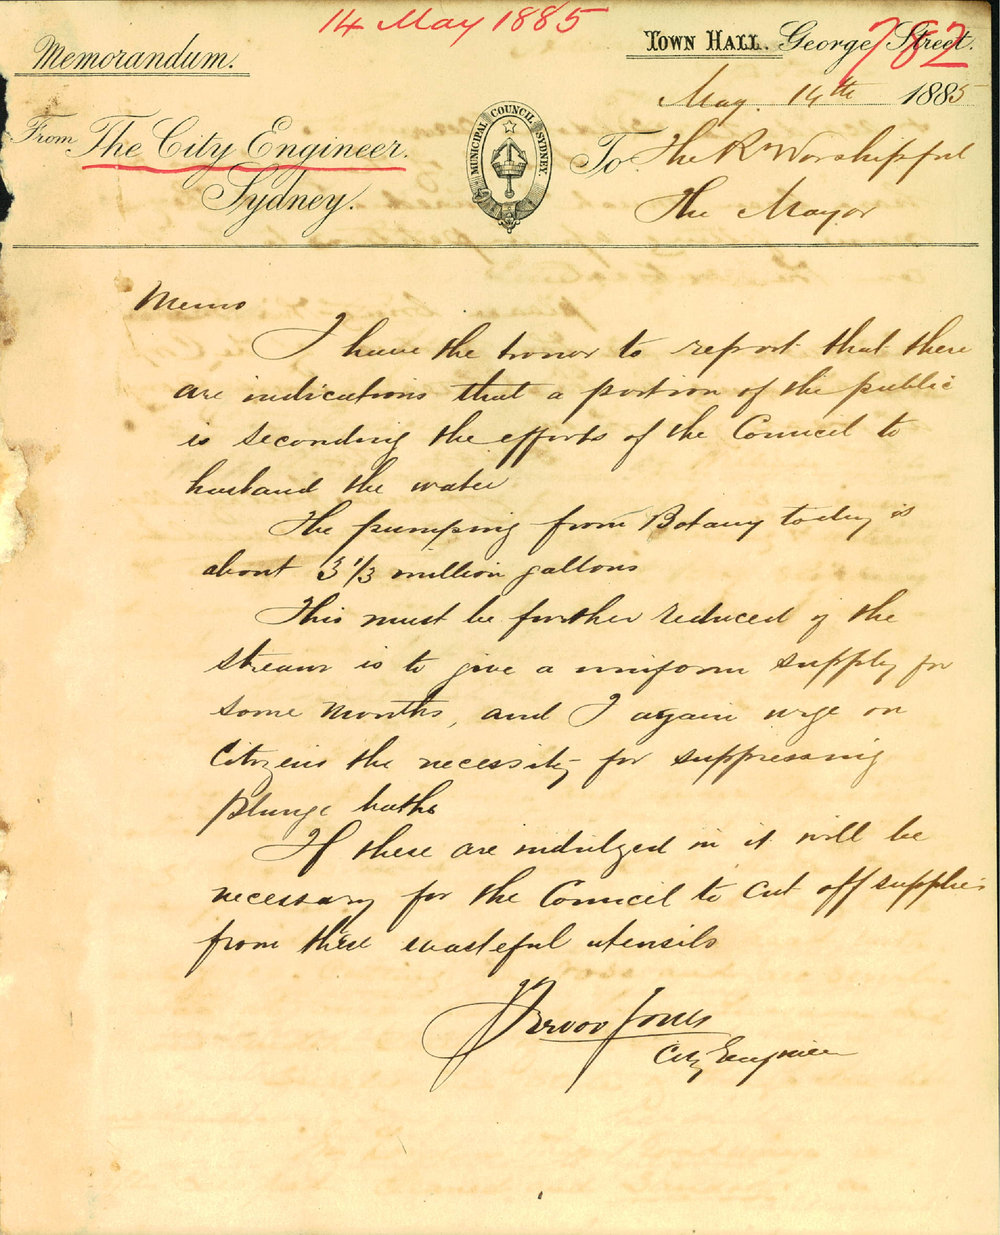 14 May 1885
782
Memorandum.
Town Hall. George Street.
May. 14th 1885
From The City Engineer.
Sydney.
MUNICIPAL COUNCIL SYDNEY.
To The Rt Worshipful
The Mayor
Memo
I have the honor to report that there
are indications that a portion of the public
is seconding the efforts of the Council to
husband the water
The pumping from Botany today is
about 3 1/3 million gallons
This must be further reduced if the
stream is to give a uniform supply for
some months, and I again urge on
Citizens the necessity for suppressing
plunge baths
If these are indulged in it will be
necessary for the Council to cut off supplies
from these wasteful utensils
J Trevor Jones
City Engineer